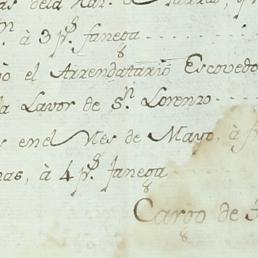 dela
à 3 p.s fanega
el Arrendatario Escovedo
la Lavor de S.n Lorenzo
en el Mes de Mayo, à
à 4 p.s fanega
Cargo de